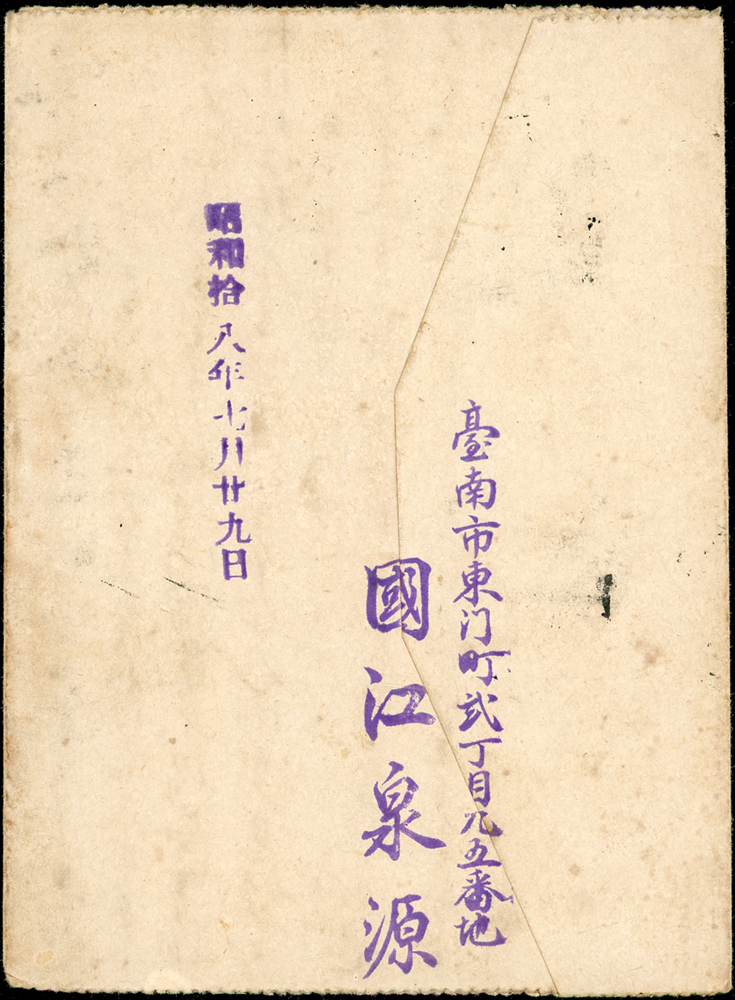 臺南市東门町弐丁目九五番地
國江泉源
昭和拾八年七月廿九日